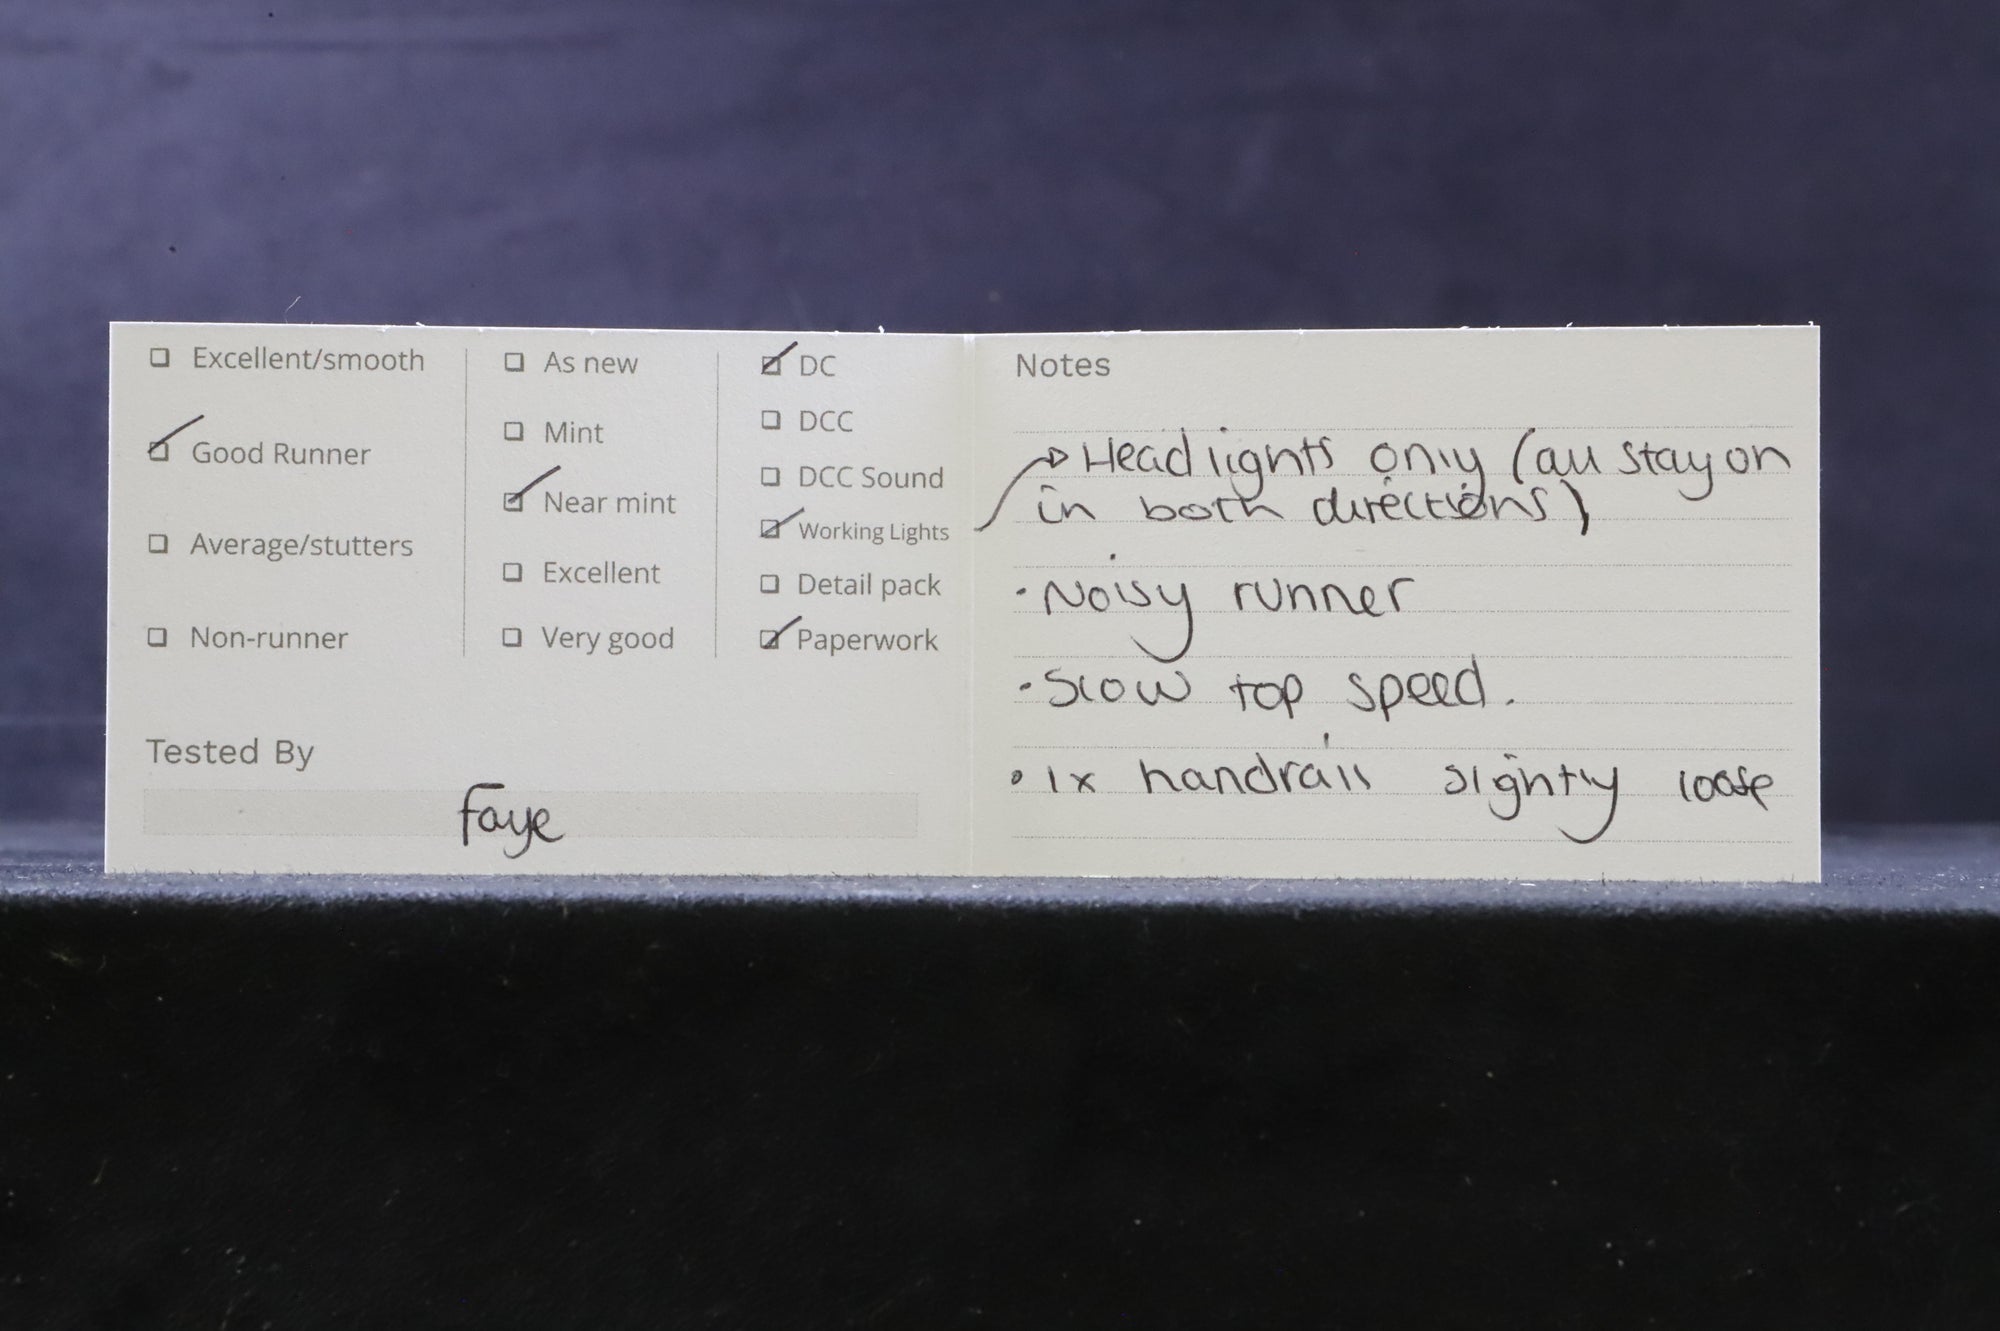 Excellent/smooth
Good Runner
Average/stutters
Non-runner
As new
Mint
Near mint
Excellent
Very good
DC
DCC
DCC Sound
Working Lights
Detail pack
Paperwork
Tested By
Faye
Notes
Headlights only (all stay on
in both directions)
• Noisy runner
• Slow top speed.
• 1x handrail slightly loose